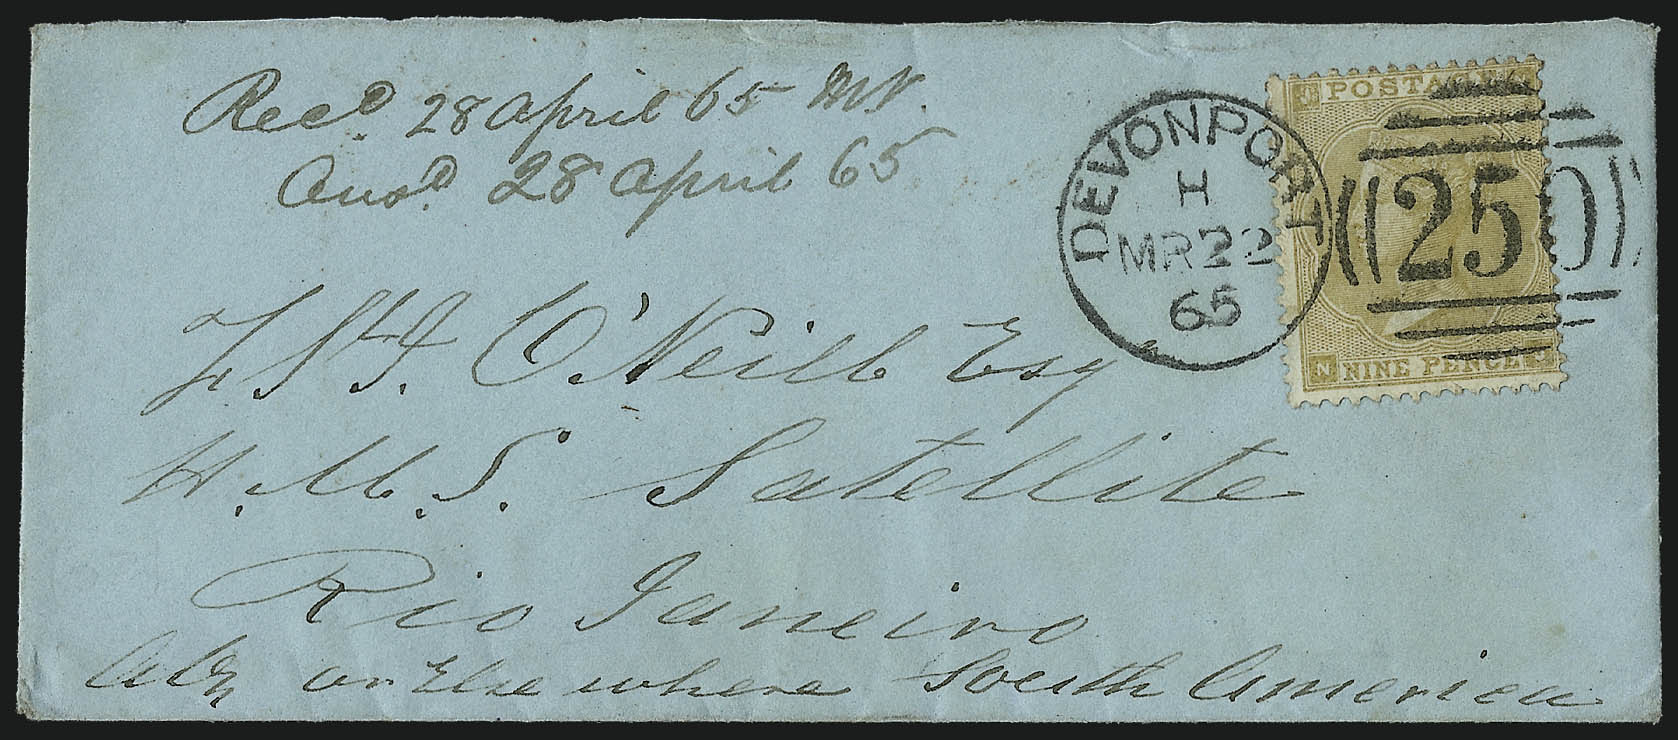 Recd. 28 April 65
Ansd. 28 April 65
DEVONPORT
H
MR 22
65
POSTAGE
250
N NINE PENCE
O'Neill Esq
H.M.S. Satellite
Rio Janeiro
or Elsewhere South America